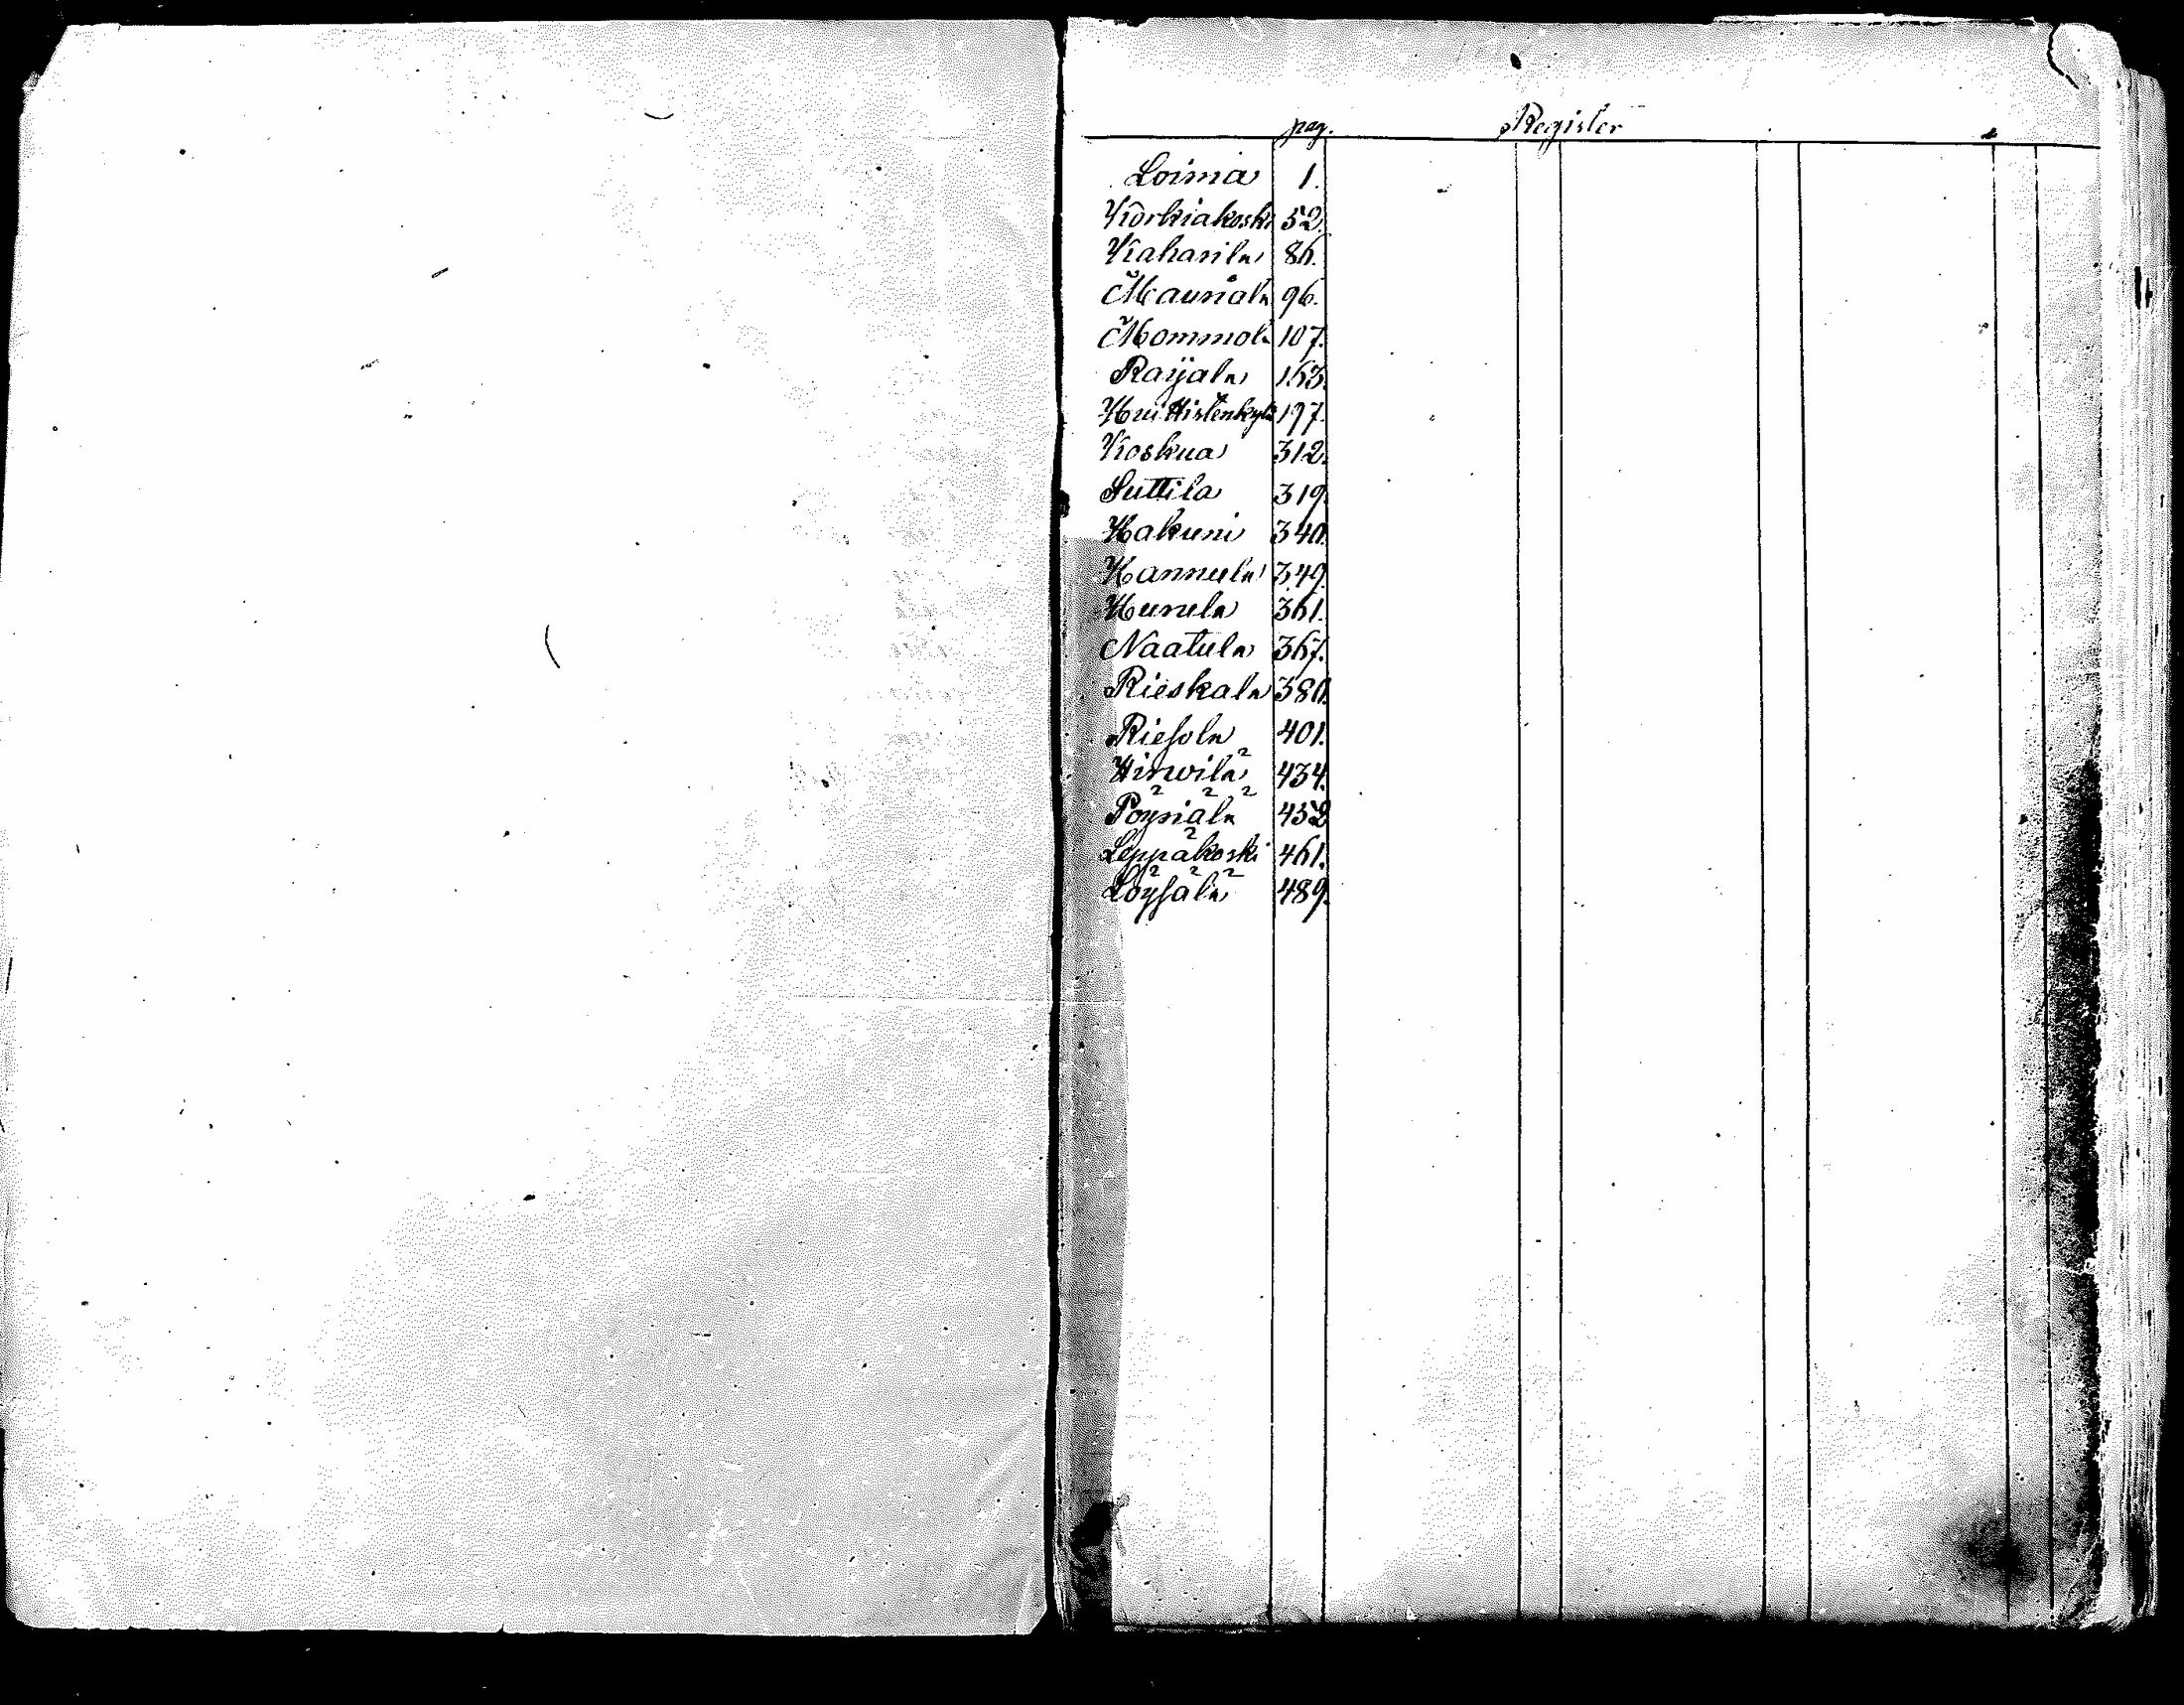 pag. Register
Loima 1.
Korkiakoski 52.
Kaharila 86.
Mauriala 96.
Mommola 107.
Raijala 163.
Huittistenkylä 197.
Koskua 312.
Suttila 319.
Hakuni 340.
Hannula 349.
Hunnla 361.
Naatula 367.
Rieskala 380.
Riesola 401.
Hirwilä 434.
Pöyriälä 452
Leppäkoski 461.
Löysälä 489.